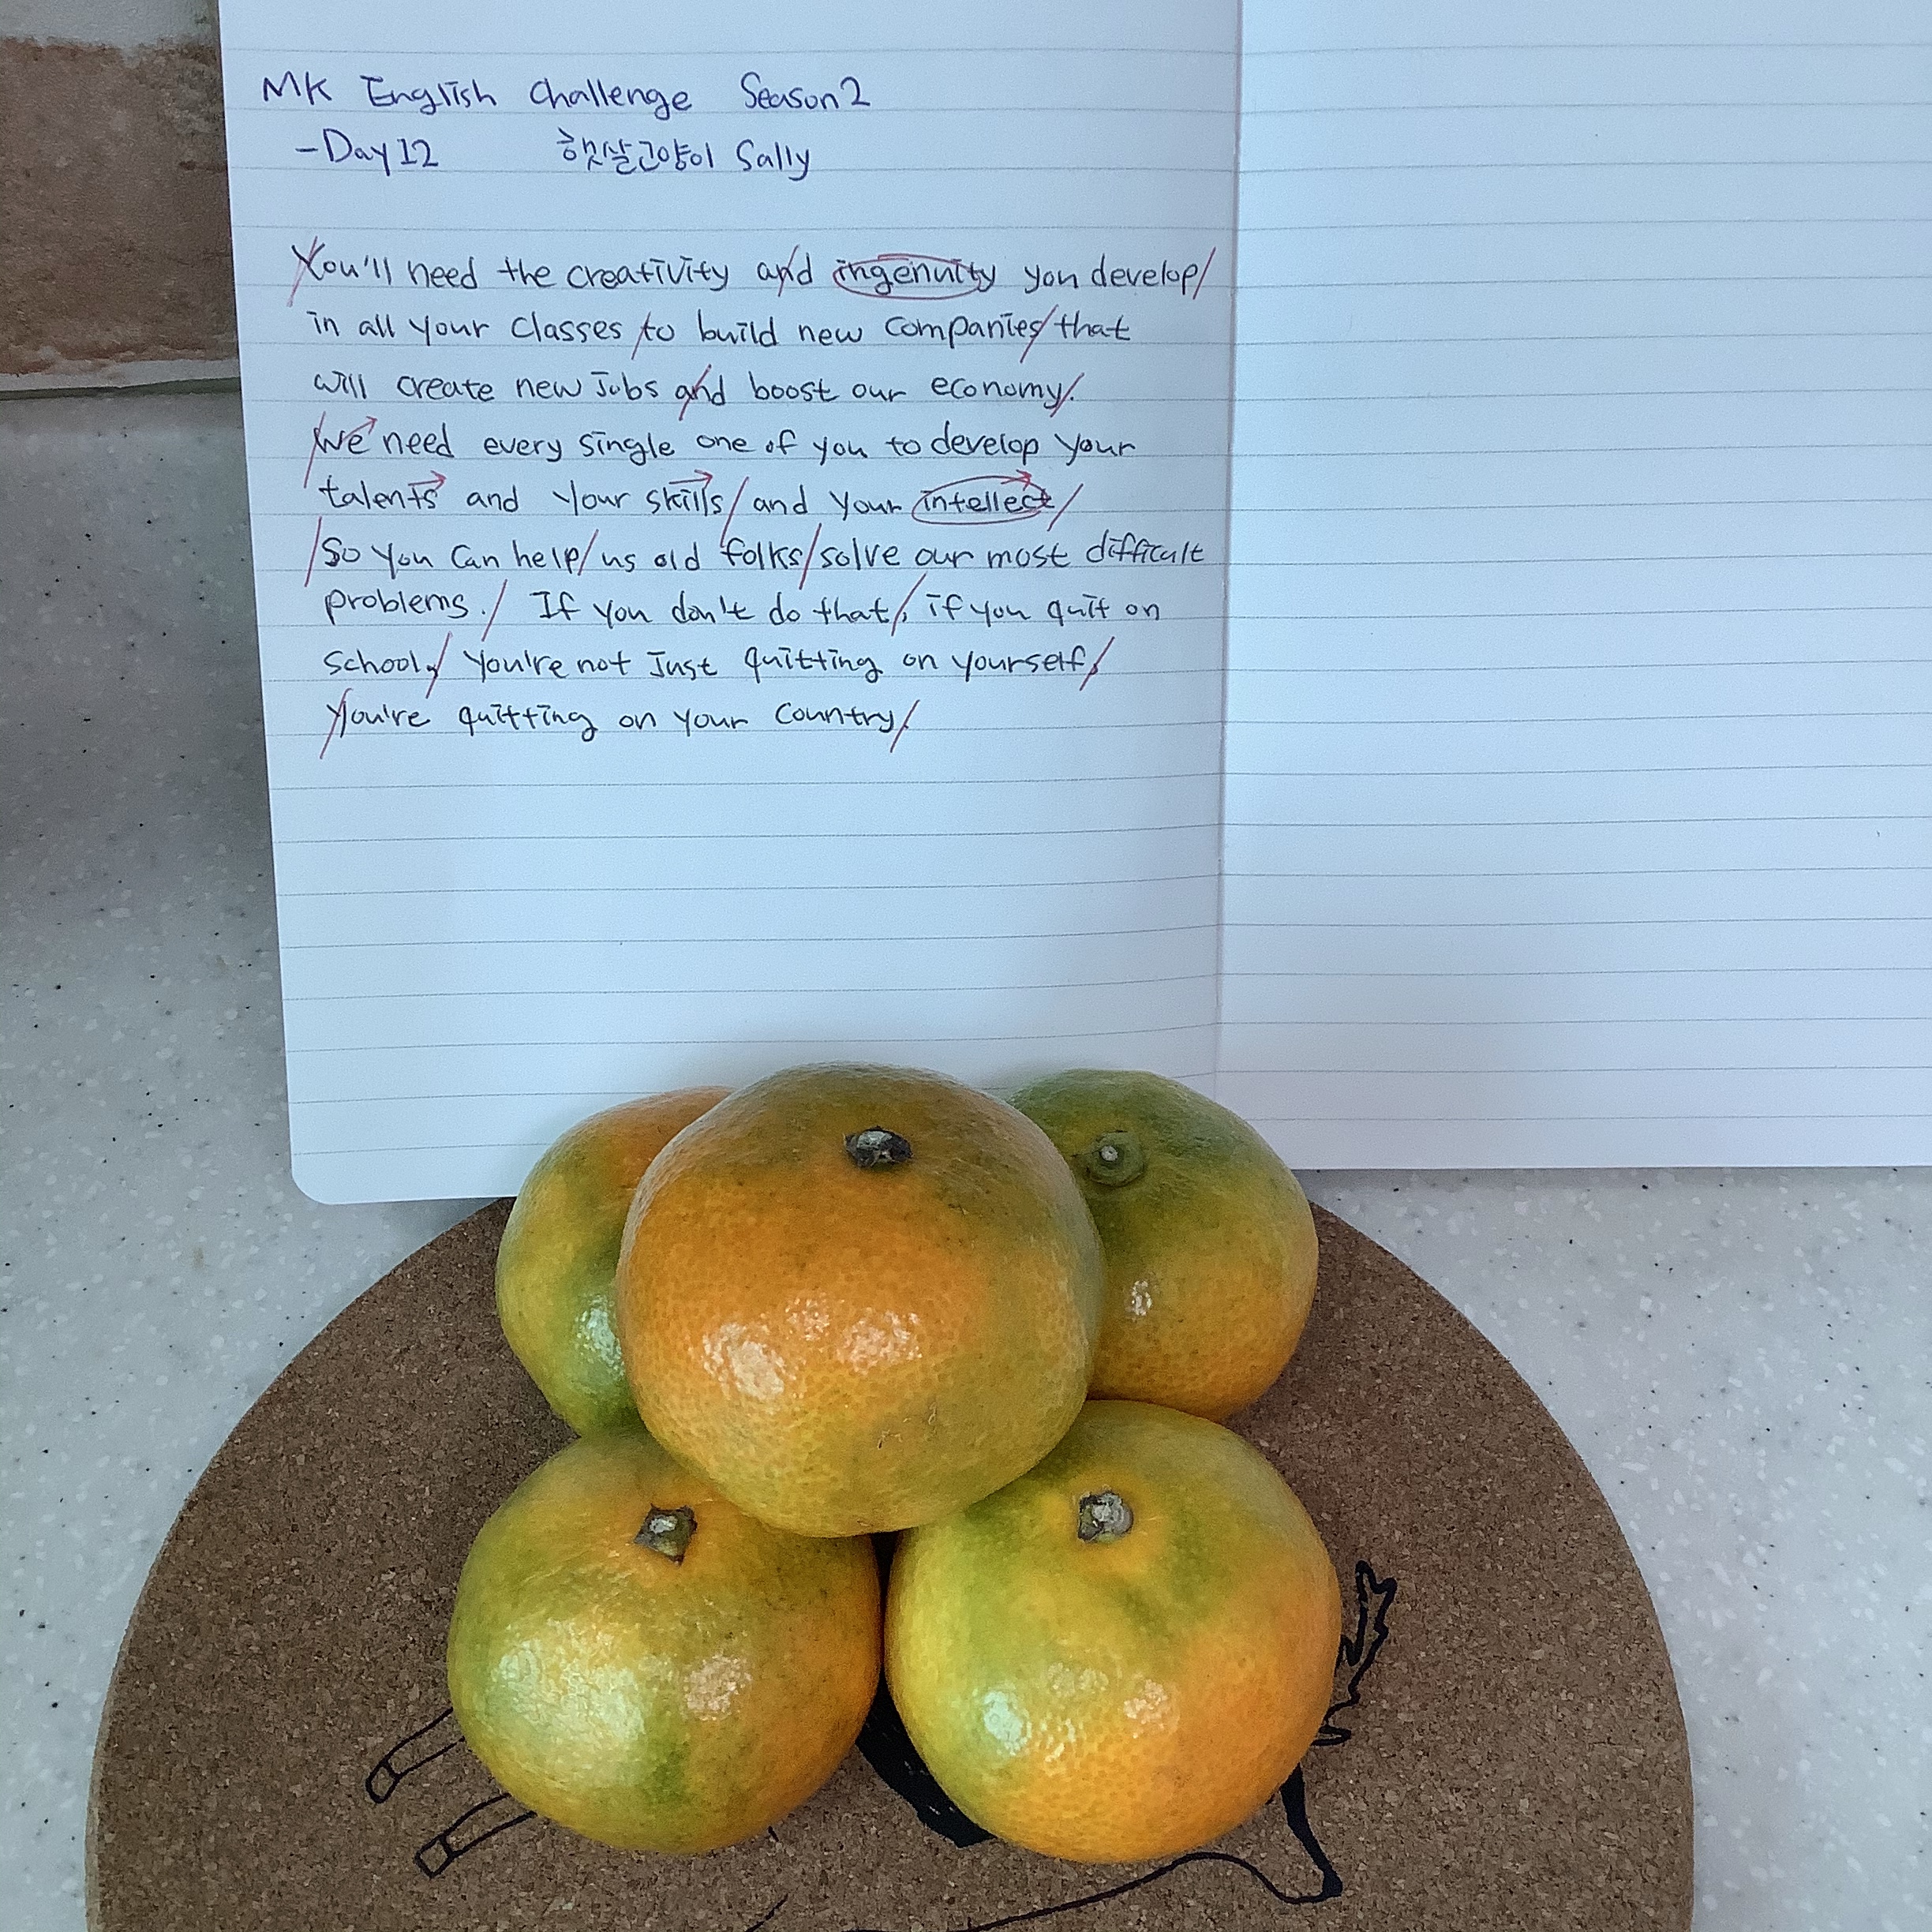 MK English Challenge Season 2
- Day 12 햇살고양이 Sally
You'll need the creativity and ingenuity you develop/
in all your classes /to build new companies/ that
will create new jobs and boost our economy/.
/We need every single one of you to develop your
talents and your skills/ and your intellect/
/So you can help/ us old folks/ solve our most difficult
problems./ If you don't do that/, if you quit on
school,/ you're not just quitting on yourself,/
/you're quitting on your country/.